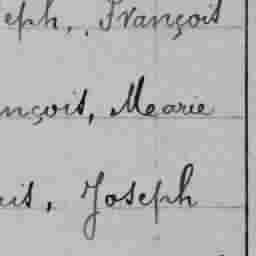 eph, François
nçois, Mearie
is, Joseph